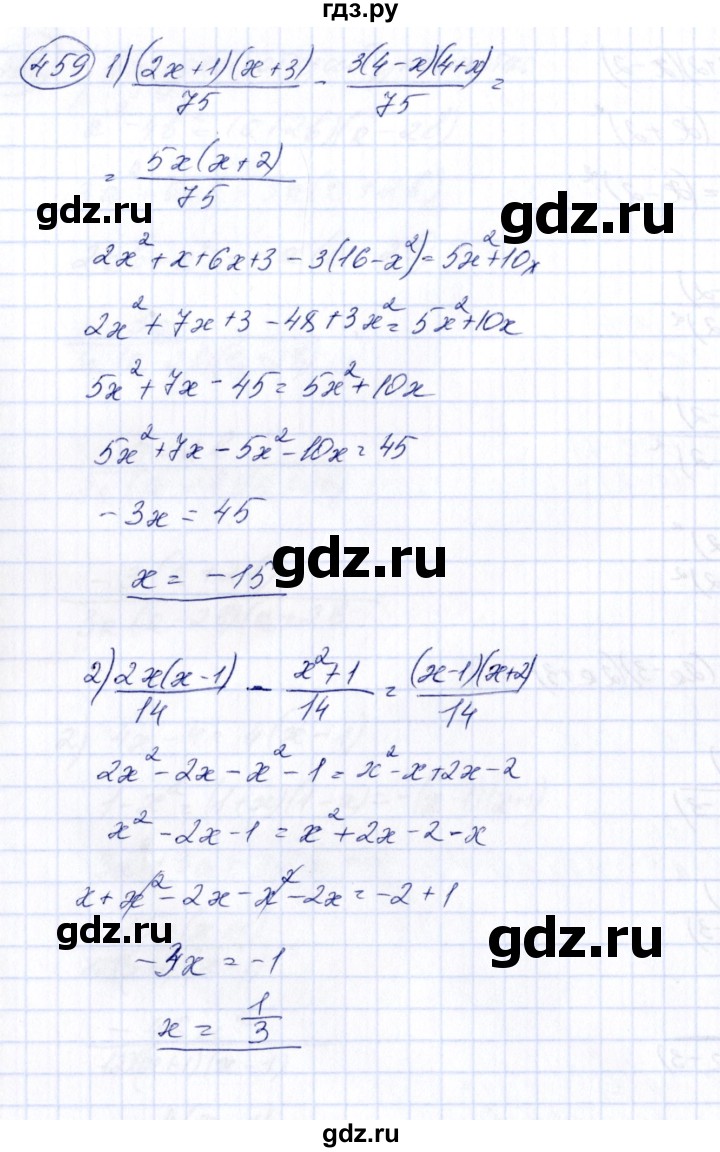 гдз.ру
459 1) (2x+1)(x+3)/75 - 3(4-x)(4+x)/75 =
= 5x(x+2)/75
gdz.ru
gdz.ru
2x²+x+6x+3-3(16-x²)=5x²+10x
2x²+7x+3-48+3x²=5x²+10x
5x²+7x-45=5x²+10x
5x²+7x-5x²-10x=45
-3x=45
gdz.ru
x=-15
2) 2x(x-1)/14 - x²+1/14 = (x-1)(x+2)/14
2x²-2x-x²-1=x²-x+2x-2
x²-2x-1=x²+2x-2-x
x+x²-2x-x²-2x=-2+1
gdz.ru
gdz.ru
-3x=-1
x=1/3
gdz.ru